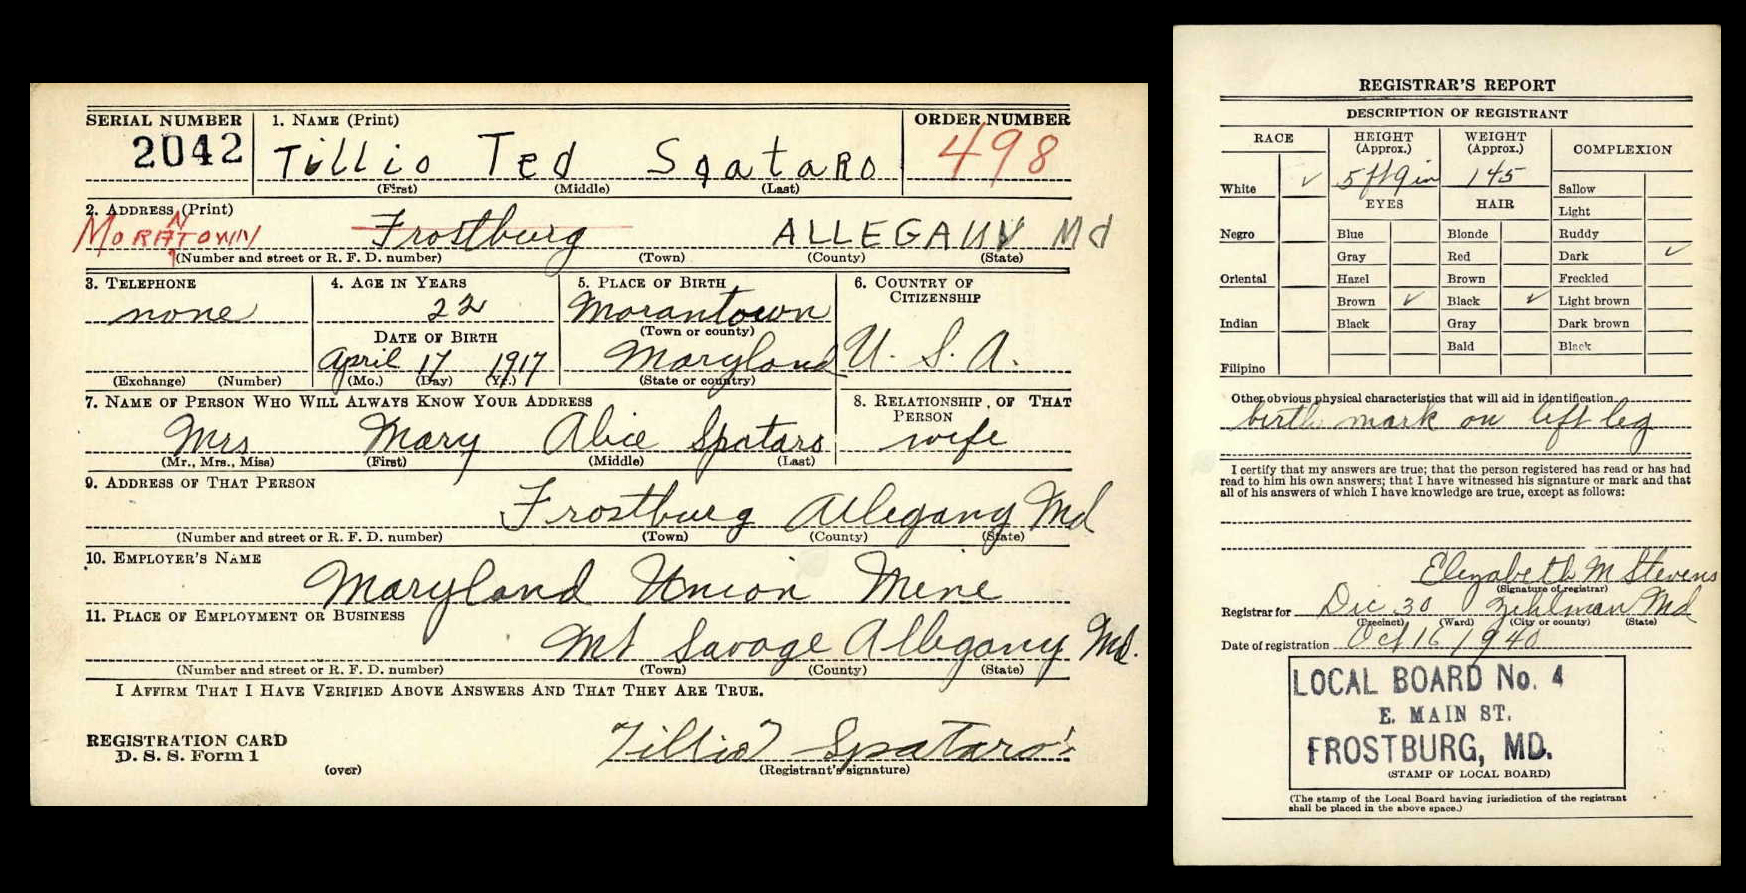 SERIAL NUMBER 1. NAME (Print) ORDER NUMBER
2042 Tillio Ted Spataro 498
(First) (Middle) (Last)
2. ADDRESS (Print)
MORANTOWN Frostburg ALLEGANY Md
(Number and street or R. F. D. number) (Town) (County) (State)
3. TELEPHONE 4. AGE IN YEARS 5. PLACE OF BIRTH 6. COUNTRY OF
CITIZENSHIP
none 22 Morantown
(Town or county)
DATE OF BIRTH
April 17 1917 Maryland U. S. A.
(Exchange) (Number) (Mo.) (Day) (Yr.) (State or country)
7. NAME OF PERSON WHO WILL ALWAYS KNOW YOUR ADDRESS 8. RELATIONSHIP OF THAT
PERSON
Mrs Mary Alice Spataro wife
(Mr., Mrs., Miss) (First) (Middle) (Last)
9. ADDRESS OF THAT PERSON
Frostburg Allegany Md
(Number and street or R. F. D. number) (Town) (County) (State)
10. EMPLOYER'S NAME
Maryland Union Mine
11. PLACE OF EMPLOYMENT OR BUSINESS
Mt Savage Allegany Md.
(Number and street or R. F. D. number) (Town) (County) (State)
I AFFIRM THAT I HAVE VERIFIED ABOVE ANSWERS AND THAT THEY ARE TRUE.
REGISTRATION CARD
D. S. S. Form 1
Tillio Spataro
(over) (Registrant's signature)
REGISTRAR'S REPORT
DESCRIPTION OF REGISTRANT
RACE HEIGHT WEIGHT COMPLEXION
(Approx.) (Approx.)
White ✓ 5 ft 9 in 145 Sallow
EYES HAIR Light
Negro Blue Blonde Ruddy
Gray Red Dark ✓
Oriental Hazel Brown Freckled
Brown ✓ Black ✓ Light brown
Indian Black Gray Dark brown
Bald Black
Filipino
Other obvious physical characteristics that will aid in identification
birth mark on left leg
I certify that my answers are true; that the person registered has read or has had
read to him his own answers; that I have witnessed his signature or mark and that
all of his answers of which I have knowledge are true, except as follows:
Elizabeth M Stevens
(Signature of registrar)
Registrar for Dic. 30 Zihlman Md
(Precinct) (Ward) (City or county) (State)
Date of registration Oct 16 1940
LOCAL BOARD No. 4
E. MAIN ST.
FROSTBURG, MD.
(STAMP OF LOCAL BOARD)
(The stamp of the Local Board having jurisdiction of the registrant
shall be placed in the above space.)